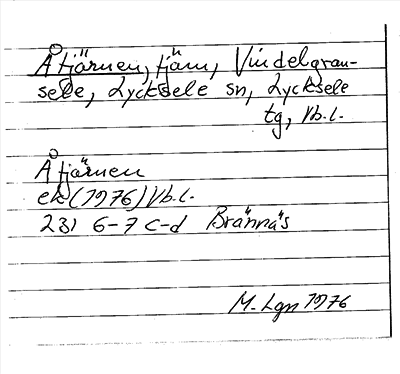 Åtjärnen, tjärn, Vindelgran-
sele, Lycksele sn, Lycksele
tg, Vb.l.
Åtjärnen
ek (1976) Vb.l.
231 6-7 c-d Brännäs
M. Lgn 1976